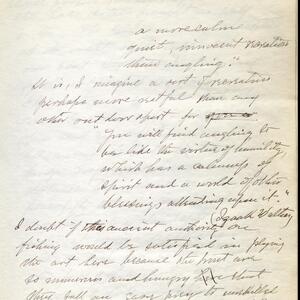 a more calm
quiet, innocent recreation
than angling."
It is, I imagine a sort of recreation
perhaps more restful than any
other out door sport for
"You will find angling to
be like the virtue of humility,
which has a calmness of
spirit and a world of other
blessings attending upon it."
(Izaak Walton)
I doubt if this ancient authority on
fishing would be satisfied in plying
the art here because the trout are
so numerous and hungry here that
they fall an easy prey to unskilled